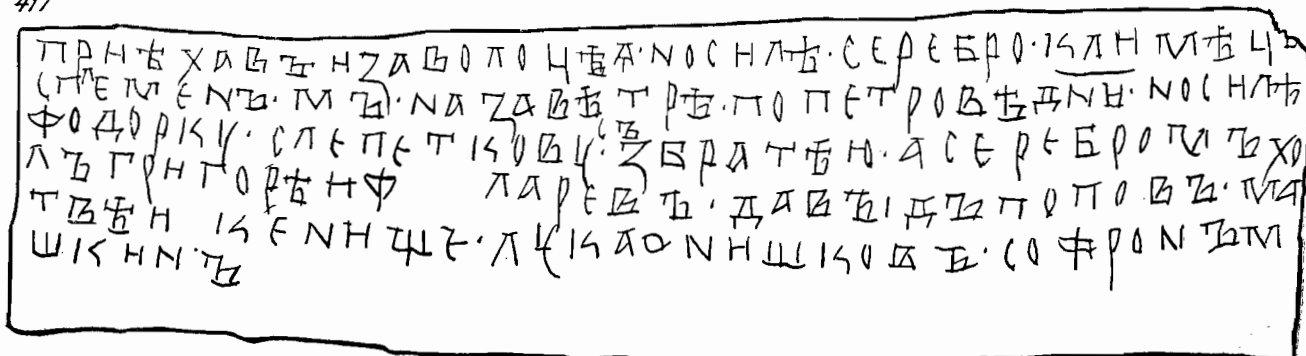 417
ПРИѢХАВЪИЗАВОЛОЦѢА·NОСИЛѢ·СЕРЕБРО·КЛИМѢЦѢ
СПЛЕМЕNЪ·МЪ·NАЗАВѢТРѢ·ПОПЕТРОВѢДNИ·NОСИЛѢ
ФОДОРКУ·СЛЕПЕТКОВУ·СЪЗБРАТѢИ·АСЕРЕБРОМЪХО
ЛЪГРИГОРѢИФ ЛАРЕВЪ·ДАВЪІДЪПОПОВЪ·МА
ТВѢИ КЕNИЩЕ·ЛУКАОNИШКОВЪ·СОФРОNЪМ
ШКИN·Ъ